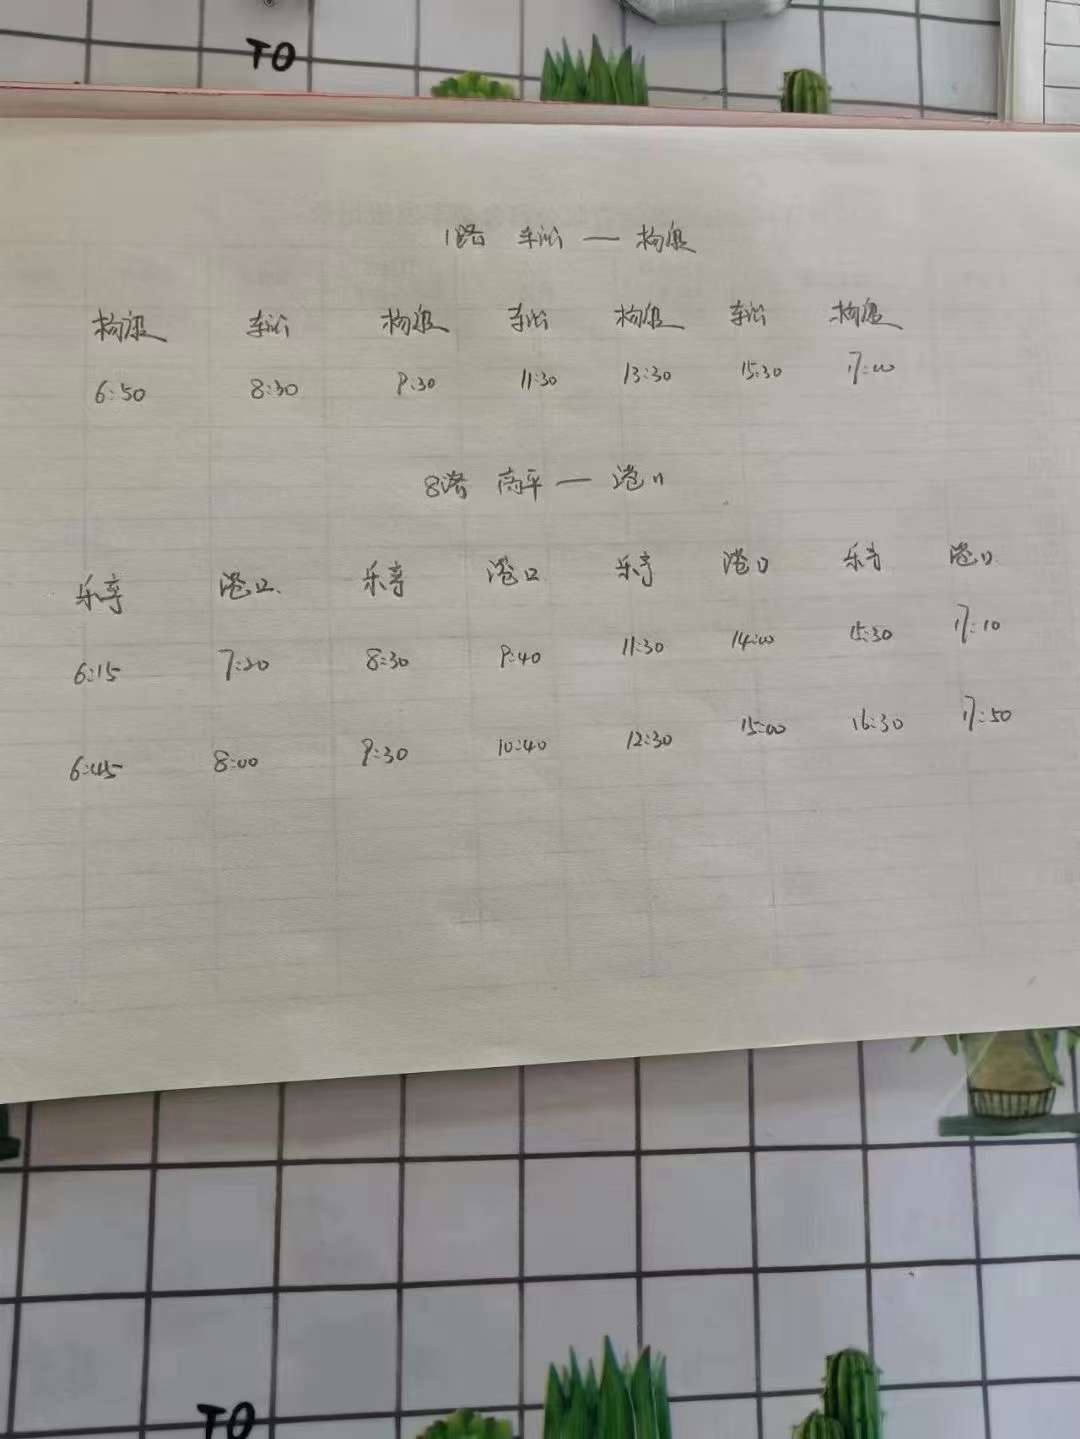 TO
1路 车站 — 杨泗
杨泗 车站 杨泗 车站 杨泗 车站 杨泗
6:50 8:30 9:30 11:30 13:30 15:30 17:00
8路 高平 — 港口
乐亭 港口 乐亭 港口 乐亭 港口 乐亭 港口
6:15 7:20 8:30 9:40 11:30 14:00 15:30 17:10
6:45 8:00 9:30 10:40 12:30 15:00 16:30 17:50
TO